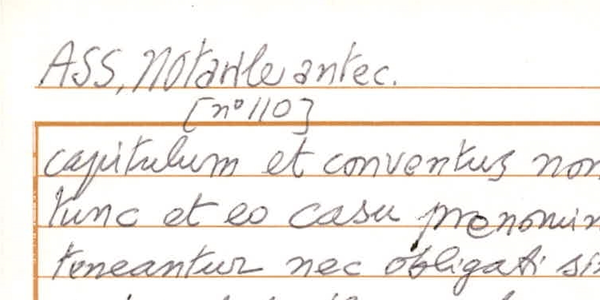 ASS, Notarile antec.
[n° 110]
capitulum et conventus non
tunc et eo casu prenomin
teneantur nec obligati si